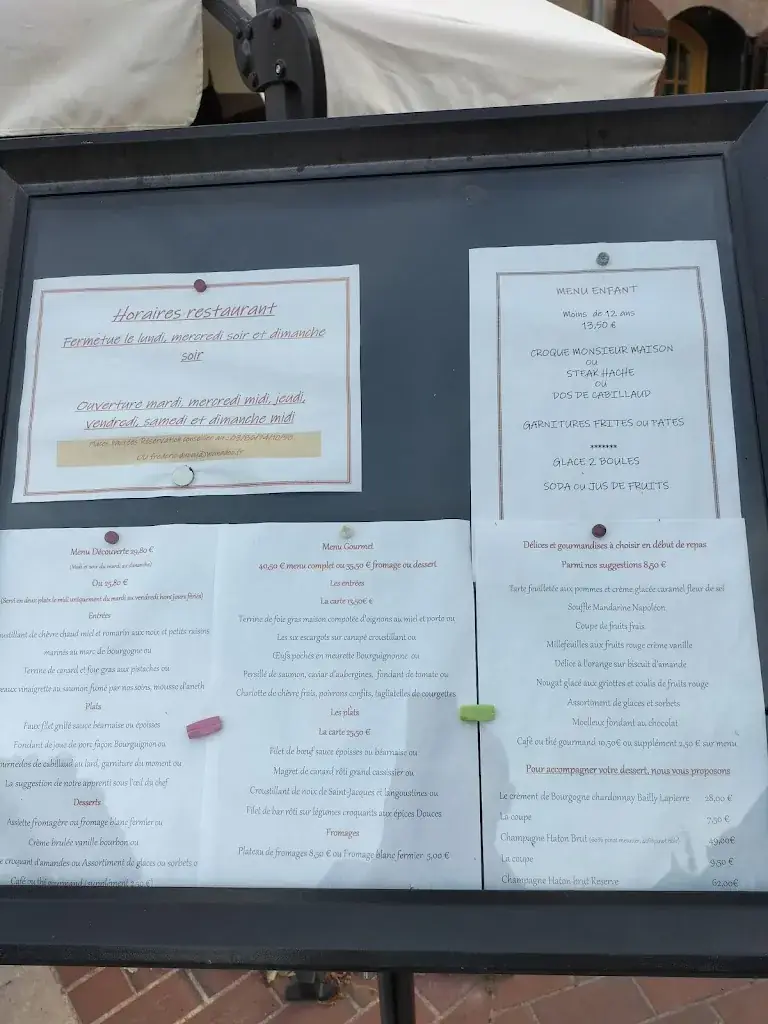 Horaires restaurant
Fermetue le lundi, mercredi soir et dimanche
soir
Ouverture mardi, mercredi midi, jeudi,
vendredi, samedi et dimanche midi
MENU ENFANT
Moins de 12 ans
13,50 €
CROQUE MONSIEUR MAISON
OU
STEAK HACHE
OU
DOS DE CABILLAUD
GARNITURES FRITES OU PATES
*******
GLACE 2 BOULES
SODA OU JUS DE FRUITS
Menu Découverte 29,80 €
(Midi et soir du mardi au dimanche)
Ou 25,80 €
(Servi en deux plats le midi uniquement du mardi au vendredi hors jours fériés)
Entrées
oustillant de chèvre chaud miel et romarin aux noix et petits raisins
marinés au marc de bourgogne ou
Terrine de canard et foie gras aux pistaches ou
eaux vinaigrette au saumon fumé par nos soins, mousse d'aneth
Plats
Faux filet grillé sauce béarnaise ou époisses
Fondant de joue de porc façon Bourguignon ou
ournedos de cabillaud au lard, garniture du moment ou
La suggestion de notre apprenti sous l'œil du chef
Desserts
Assiette fromagère ou fromage blanc fermier ou
Crème brulée vanille bourbon ou
e croquant d'amandes ou Assortiment de glaces ou sorbets o
Café ou thé gourmand (supplément 2,50 €)
Menu Gourmet
40,50 € menu complet ou 35,50 € fromage ou dessert
Les entrées
La carte 15,50€ €
Terrine de foie gras maison compotée d'oignons au miel et porto ou
Les six escargots sur canapé croustillant ou
Œufs pochés en meurette Bourguignonne ou
Persillé de saumon, caviar d'aubergines, fondant de tomate ou
Charlotte de chèvre frais, poivrons confits, tagliatelles de courgettes
Les plats
La carte 25,50 €
Filet de bœuf sauce époisses ou béarnaise ou
Magret de canard rôti grand cassissier ou
Croustillant de noix de Saint-Jacques et langoustines ou
Filet de bar rôti sur légumes croquants aux épices Douces
Fromages
Plateau de fromages 8,50 € ou Fromage blanc fermier 5,00 €
Délices et gourmandises à choisir en début de repas
Parmi nos suggestions 8,50 €
Tarte feuilletée aux pommes et crème glacée caramel fleur de sel
Soufflé Mandarine Napoléon
Coupe de fruits frais
Millefeuilles aux fruits rouge crème vanille
Délice à l'orange sur biscuit d'amande
Nougat glacé aux griottes et coulis de fruits rouge
Assortiment de glaces et sorbets
Moelleux fondant au chocolat
Café ou thé gourmand 10,50€ ou supplément 2,50 € sur menu
Pour accompagner votre dessert, nous vous proposons
Le crément de Bourgogne chardonnay Bailly Lapierre 28,00 €
La coupe 7,50 €
Champagne Haton Brut 49,00€
La coupe 9,50 €
Champagne Haton brut Reserve 62,00€